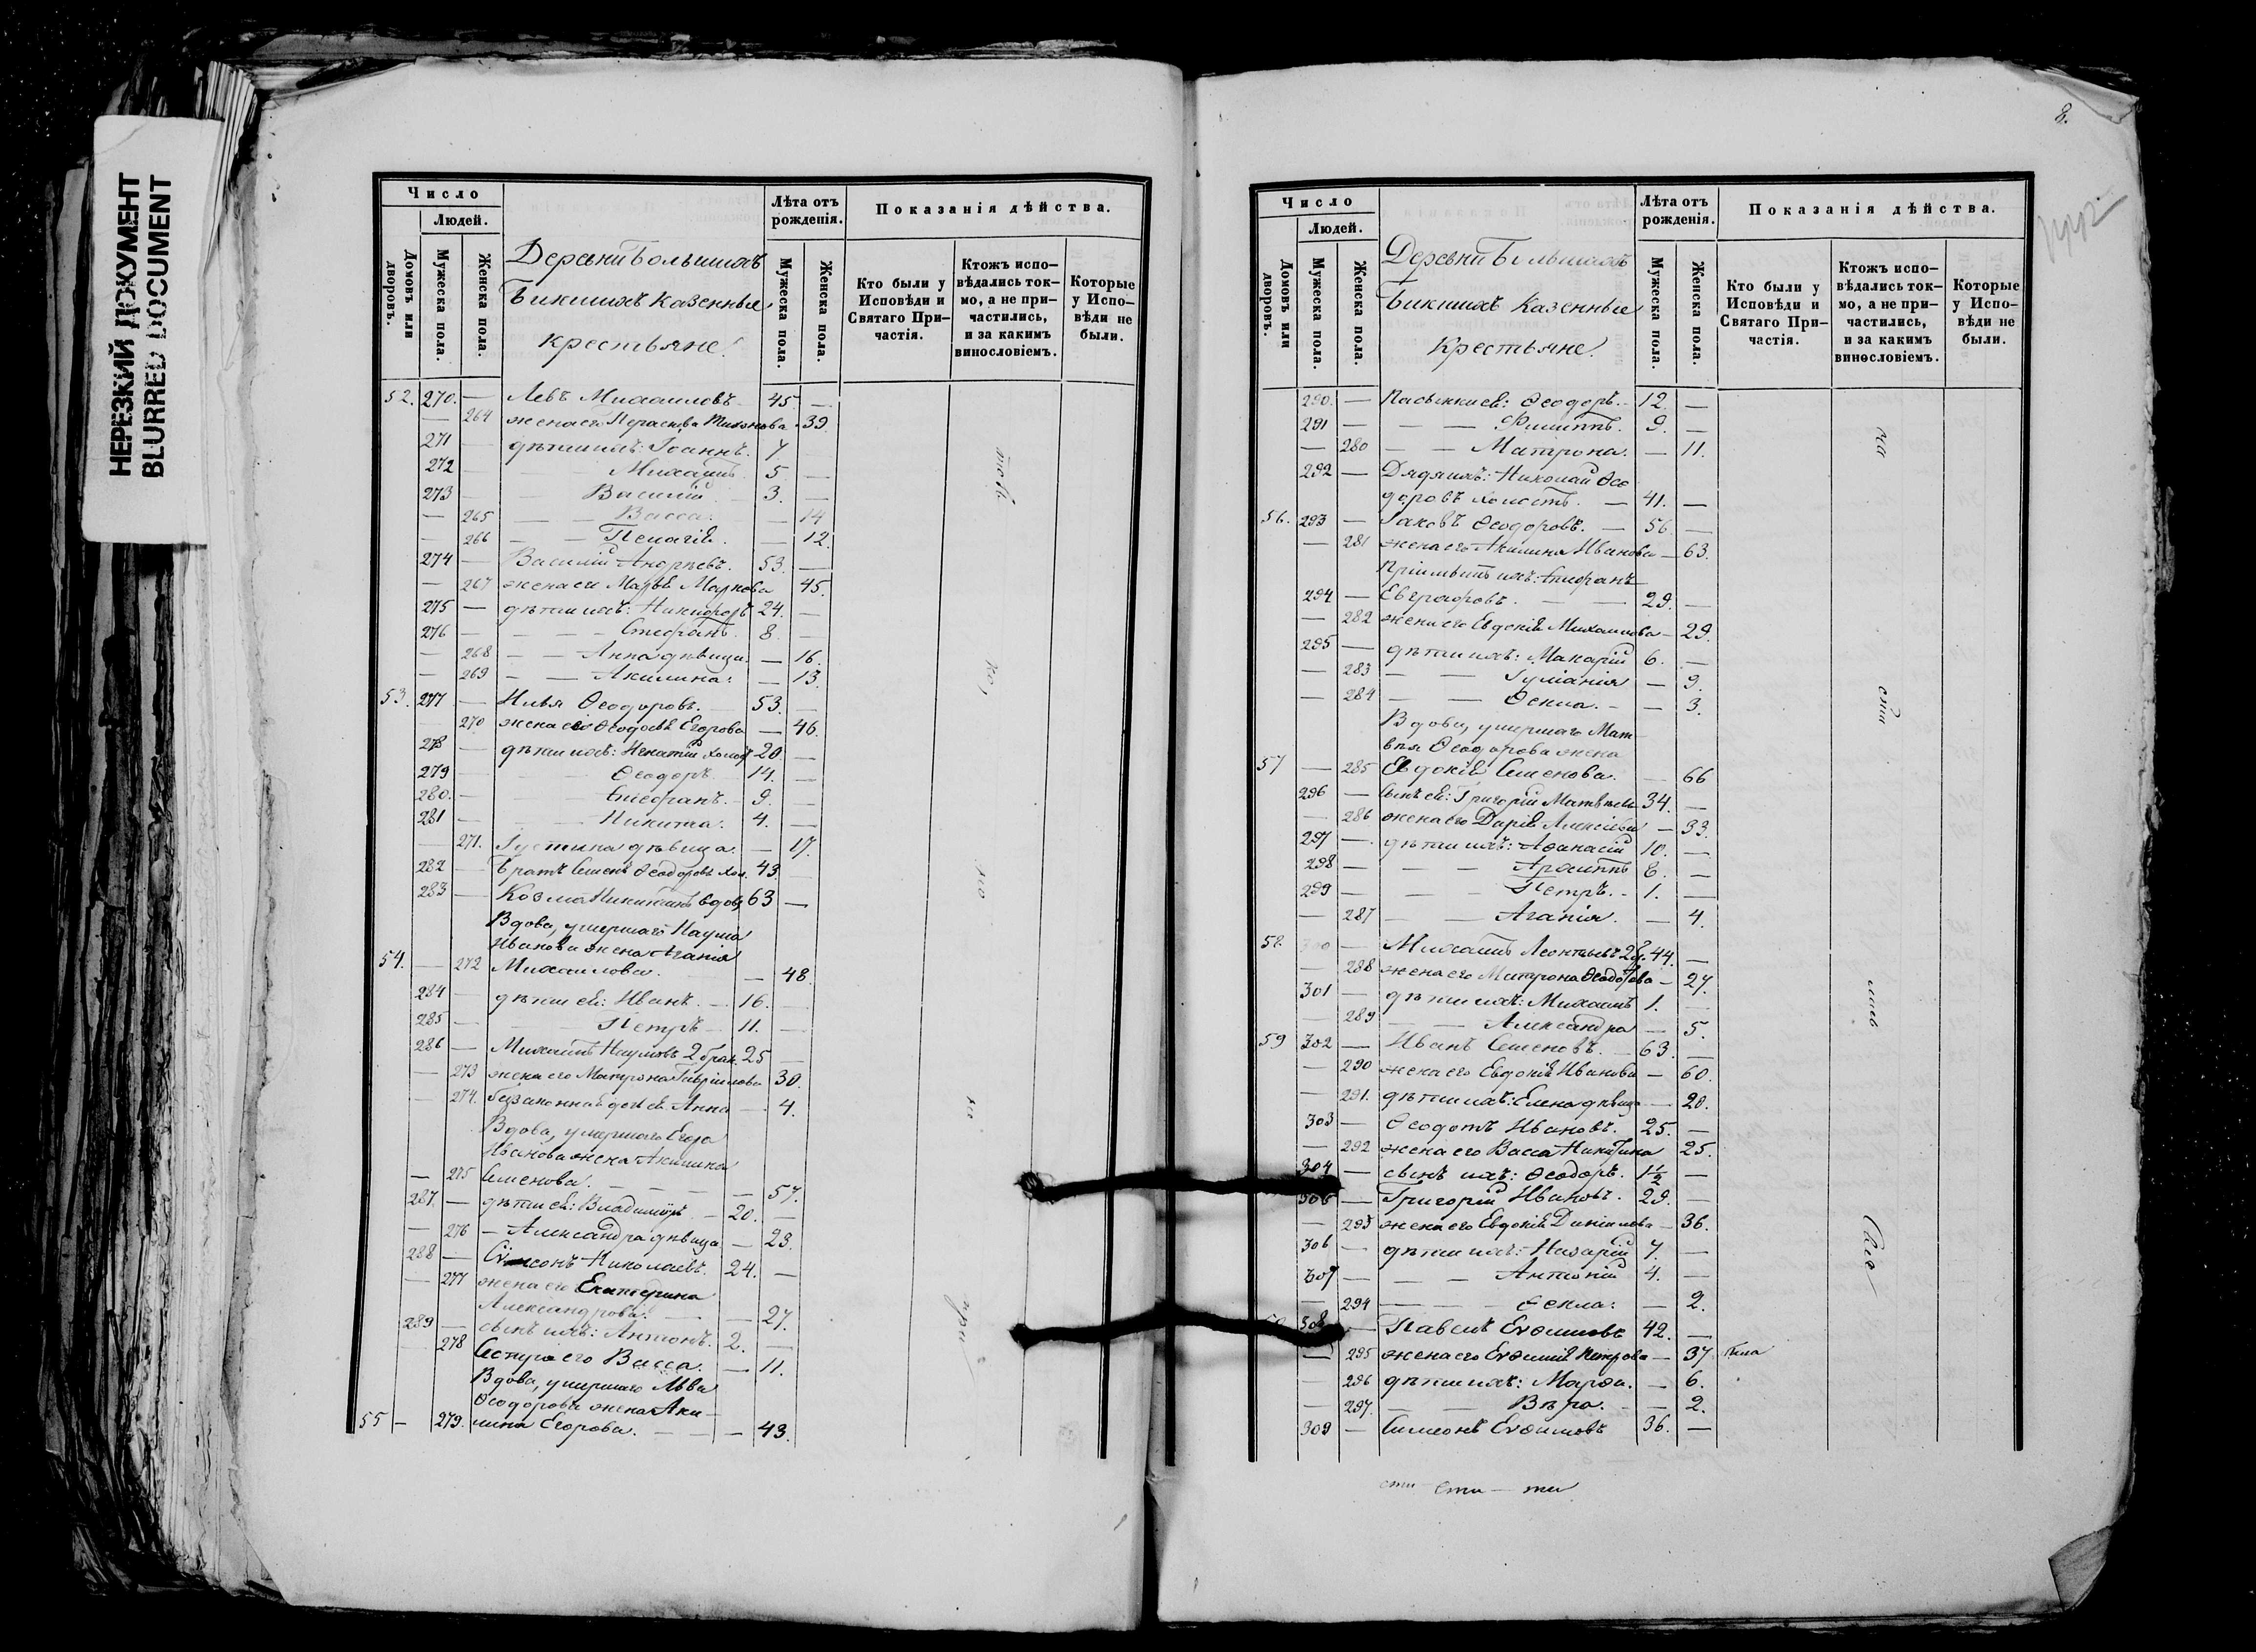 НЕРЕЗКИЙ ДОКУМЕНТ
BLURRED DOCUMENT
Число
Людей.
Домовъ или дворовъ.
Мужеска пола.
Женска пола.
Деревни Большихъ
Бикшихъ казенные
крестьяне.
Лѣта отъ рожденія.
Мужеска пола.
Женска пола.
Показанія дѣйства.
Кто были у Исповѣди и Святаго При-частія.
Ктожъ испо-вѣдались ток-мо, а не при-частились, и за какимъ винословіемъ.
Которые у Испо-вѣди не были.
52. 270. — Левъ Михаиловъ 45. —
— 264 жена его Параскева Тихонова 39.
271 — дѣти ихъ: Іоаннъ. 7
272 — Михаилъ 5 —
273 — Василій 3. —
— 265 — — Васса. — 14
— 266 — — Пелагія. — 12.
274 — Василій Андреевъ. 53. —
— 267 жена его Марья Маркова 45.
275 — дѣти ихъ: Никифоръ 24. —
276 — — — Стефанъ. 8. —
— 268 — — Анна дѣвица. — 16.
— 269 — — Акилина: — 13.
53. 277 — Илья Ѳеодоровъ. 53. —
270 жена его Ѳеодосія Егорова — 46.
278 — дѣти ихъ: Игнатій холост 20. —
279 — Ѳеодоръ 14. —
280. — Епифанъ. 9. —
281 — Никита. 4. —
— 271. Іустина дѣвица. — 17.
282 — Братъ Семенъ Ѳеодоровъ хол. 43.
283 — Козма Никитинъ вдовъ 63 —
Вдова, умершаго Наума
Иванова жена Агапія
54. — 272 Михаилова. — 48.
284 — дѣти ея: Иванъ. — 16. —
285 — Петръ — 11. —
286 — Михаилъ Наумовъ 2 брак. 25 —
— 273 жена его Матрона Гавріилова 30.
— 274. Незаконная дочь ея Анна — 4.
Вдова, умершаго Егора
Иванова жена Акилина
— 275 Семенова. — — — — 57.
287 — дѣти ея: Владиміръ — 20. —
— 276 — Александра дѣвица — 23.
288 — Сѵмеонъ Николаевъ. 24. —
— 277 жена его Екатерина
Александрова. — — 27.
289 — сынъ ихъ: Антонъ. 2. —
278 Сестра его Васса. — 11.
Вдова, умершаго Льва
Ѳеодорова жена Аки-
55 — 279. лина Егорова. — — — 43.
8.
Число
Людей.
Домовъ или дворовъ.
Мужеска пола.
Женска пола.
Деревни Большихъ
Бикшихъ казенные
Крестьяне.
Лѣта отъ рожденія.
Мужеска пола.
Женска пола.
Показанія дѣйства.
Кто были у Исповѣди и Святаго При-частія.
Ктожъ испо-вѣдались ток-мо, а не при-частились, и за какимъ винословіемъ.
Которые у Испо-вѣди не были.
290. — Пасынки ея: Ѳеодоръ. — 12. —
291 — — — Филиппъ. 9. —
— 280 — — Матрона. — 11.
292 — Дядя ихъ: Николай Ѳео
доровъ холостъ. — 41. —
56. 293 — Іаковъ Ѳеодоровъ. — 56. —
— 281 жена его Акилина Иванова — 63.
Пріимышъ ихъ: Епифанъ
294 — Евграфовъ. — — 29. —
— 282 жена его Евдокія Михаилова — 29.
295 — дѣти ихъ: Макарій 6. —
— 283 — — Іуліанія — 9.
— 284 — — Ѳекла. — — 3.
Вдова, умершаго Мат-
вѣя Ѳеодорова жена
57 — 285 Евдокія Семенова. — 66
296 — Сынъ ея: Григорій Матвѣевъ 34. —
— 286 жена его Дарія Алексіева — 33.
297 — дѣти ихъ: Аѳанасій 10. —
298 — — — Архиппъ 6. —
299 — — — Петръ. — 1. —
— 287 — — Агапія. — 4.
58. 300 — Михаилъ Леонтьевъ 2 бр. 44. —
— 288 жена его Матрона Ѳеодотова — 27.
301 — дѣти ихъ: Михаилъ 1. —
— 289 — — Александра — 5.
59 302 — Иванъ Семеновъ. — 63. —
— 290 жена его Евдокія Иванова — 60.
— 291. дѣти ихъ: Елена дѣвица — 20.
303 — Ѳеодотъ Ивановъ. 25. —
— 292 жена его Васса Никитина 25.
304 — сынъ ихъ: Ѳеодоръ. 1½ —
305 — Григорій Ивановъ. 29. —
— 293 жена его Евдокія Даніилова — 36.
306 — дѣти ихъ: Назарій 7. —
307 — — — Антоній 4. —
— 294 — — — Ѳекла: — 2.
308 — Павелъ Евѳимовъ 42. —
— 295 жена его Евѳимія Петрова — 37 была
— 296 дѣти ихъ: Марѳа. — 6.
— 297. — — Вѣра. — — 2.
309 — Симеонъ Евѳимовъ 36. —